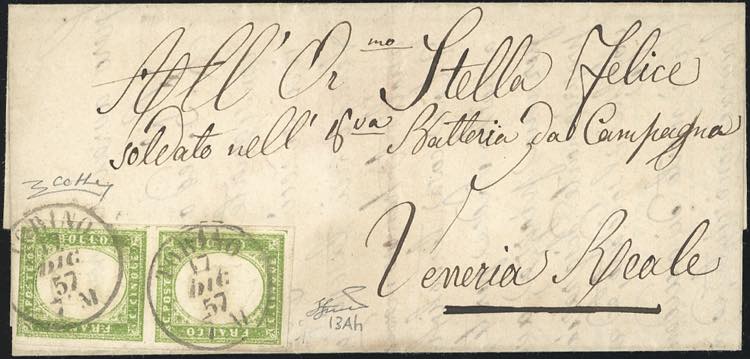 All' Or.mo Stella Felice
soldato nell' 8va Batteria da Campagna
Veneria Reale
TORINO
17
DIC
57
M
TORINO
17
DIC
57
M
FRANCO
BOLLO
POSTE
C. CINQUE
FRANCO
BOLLO
POSTE
C. CINQUE
13Ah